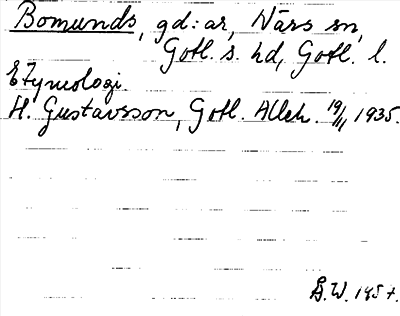 Bomunds, gd:ar, Närs sn,
Gotl. s. hd, Gotl. l.
Etymologi.
H. Gustavsson, Gotl. Alleh. 19/11 1935.
B.W. 1957.